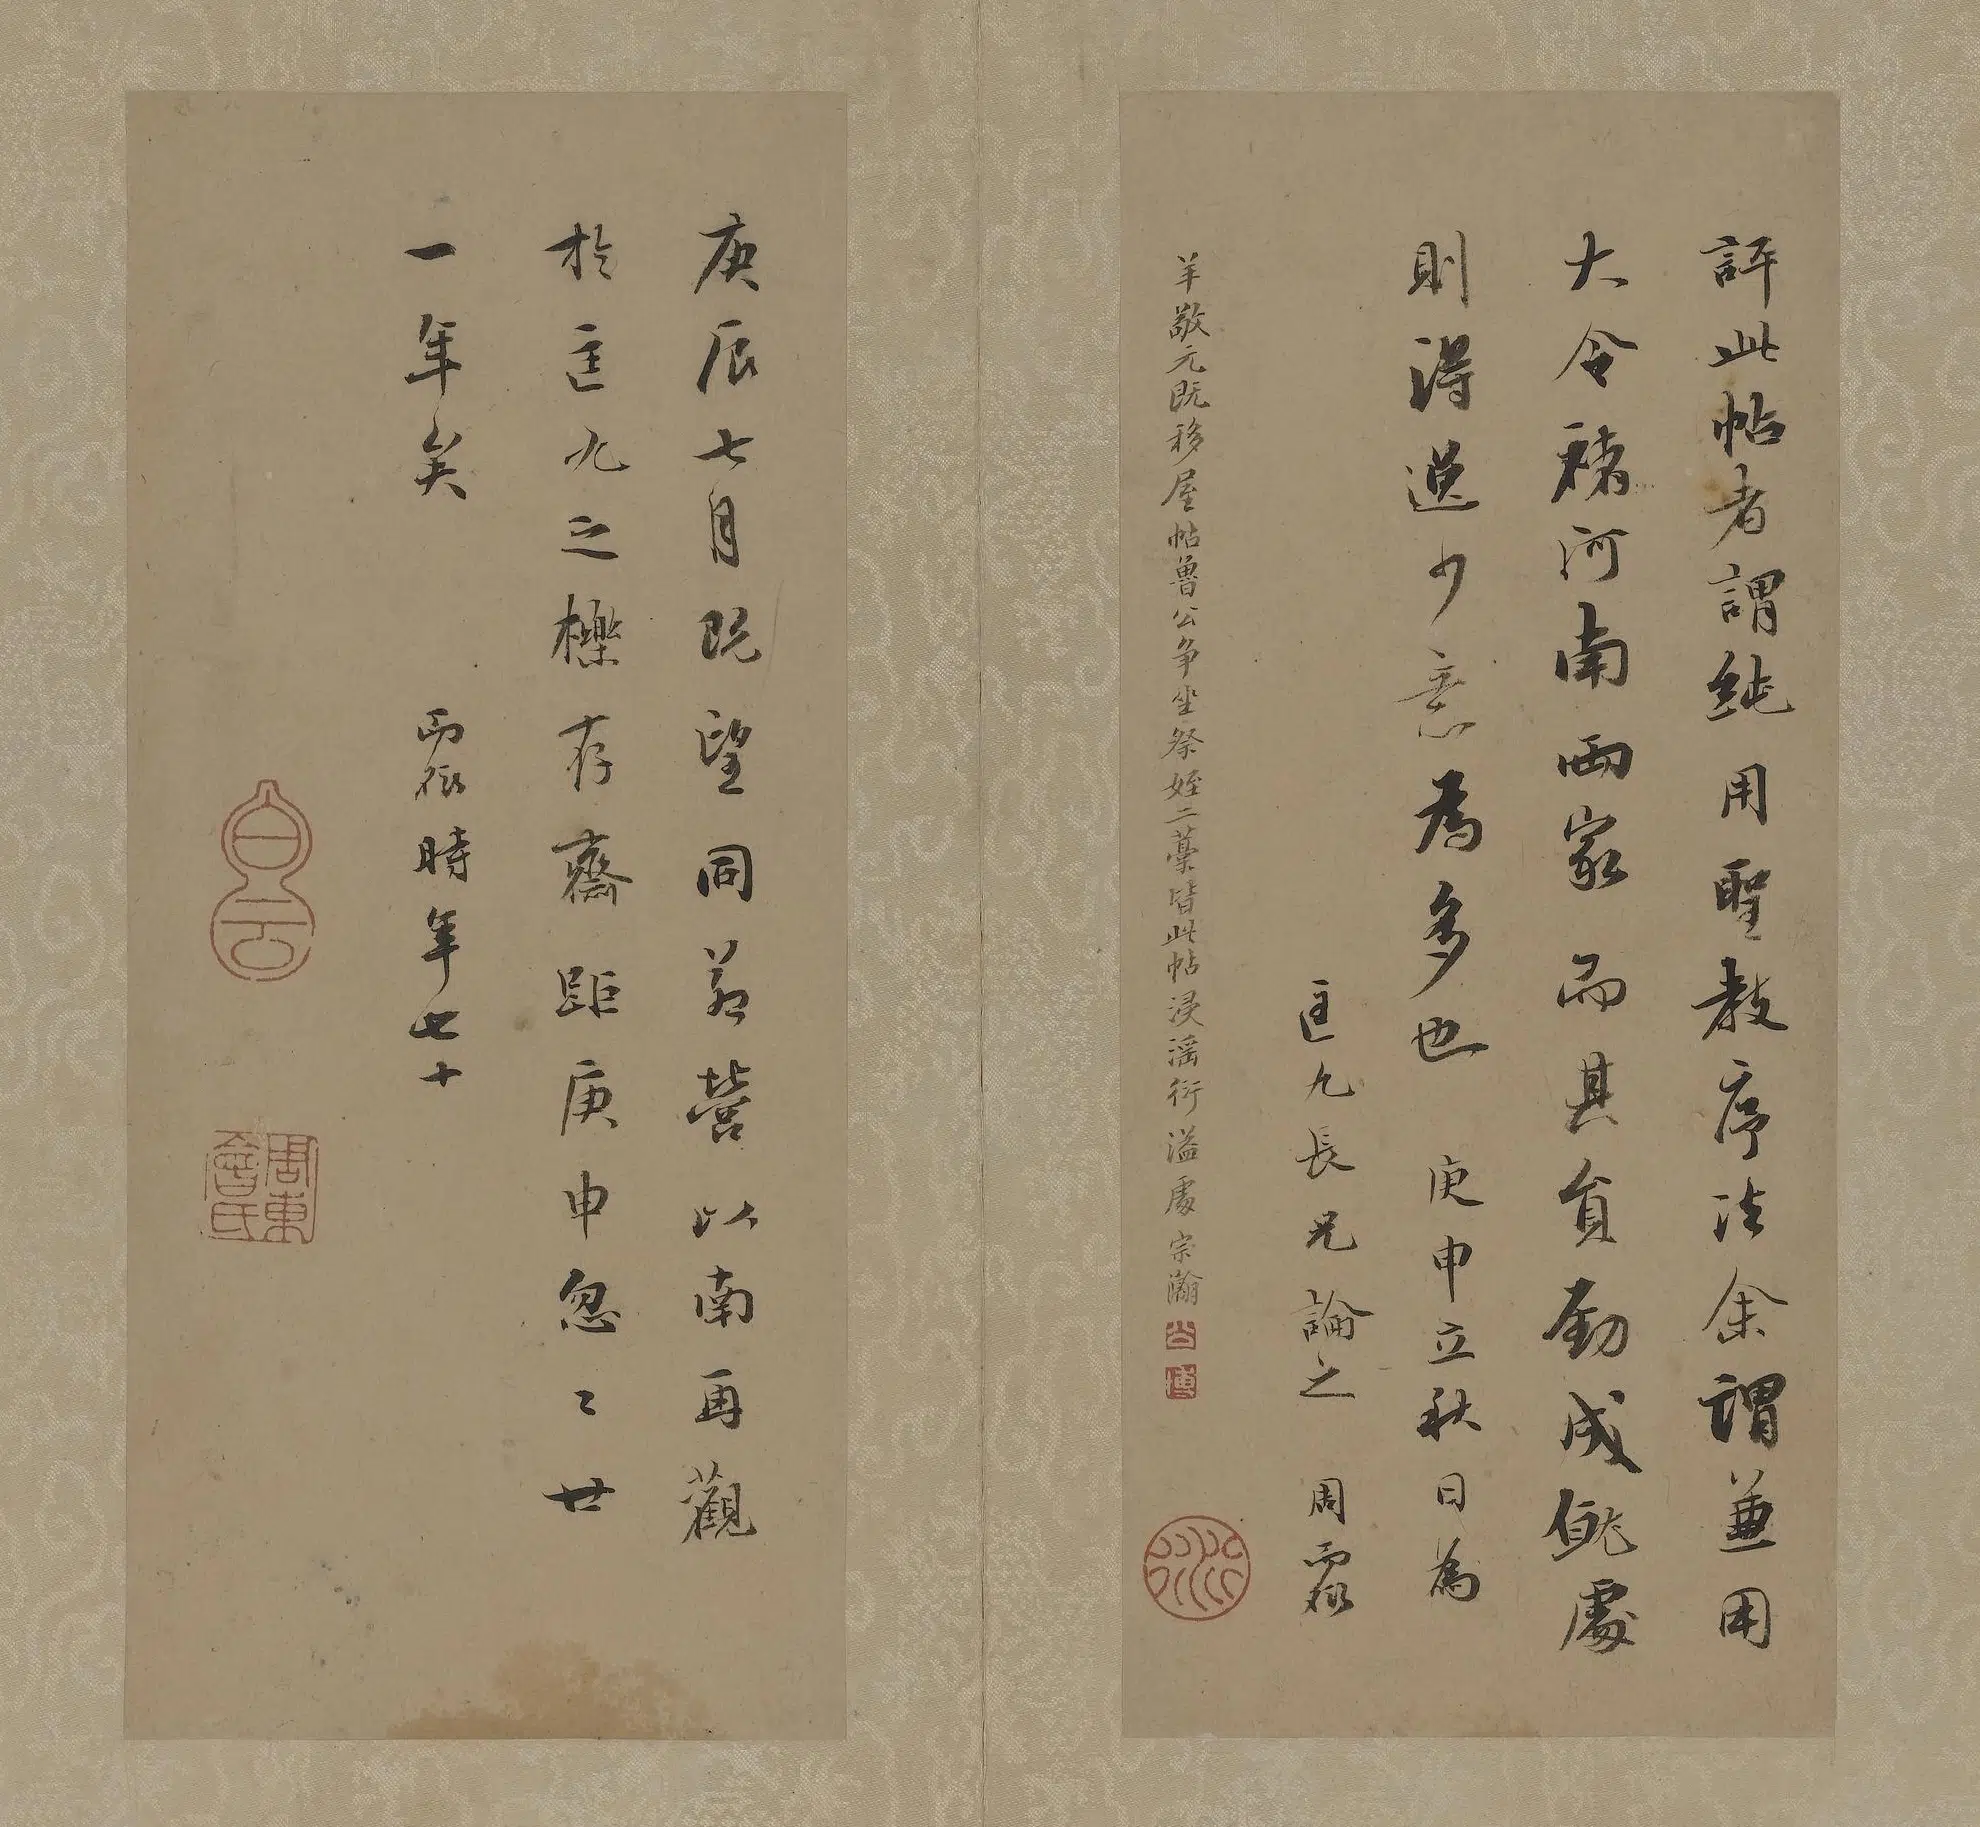 評此帖者謂純用聖教序法余謂兼用
大令褚河南兩家而其負勁成處
則得逸少意為多也 庚申立秋日為
匡九長兄論之 周
羊敬元既移屋帖魯公爭坐祭姪二藁皆此帖浸淫衍溢處 宗瀚
公
博
庚辰七月既望同營以南再觀
於匡九之櫟存齋距庚申忽〻廿
一年矣 時年七十
白云
周東會氏